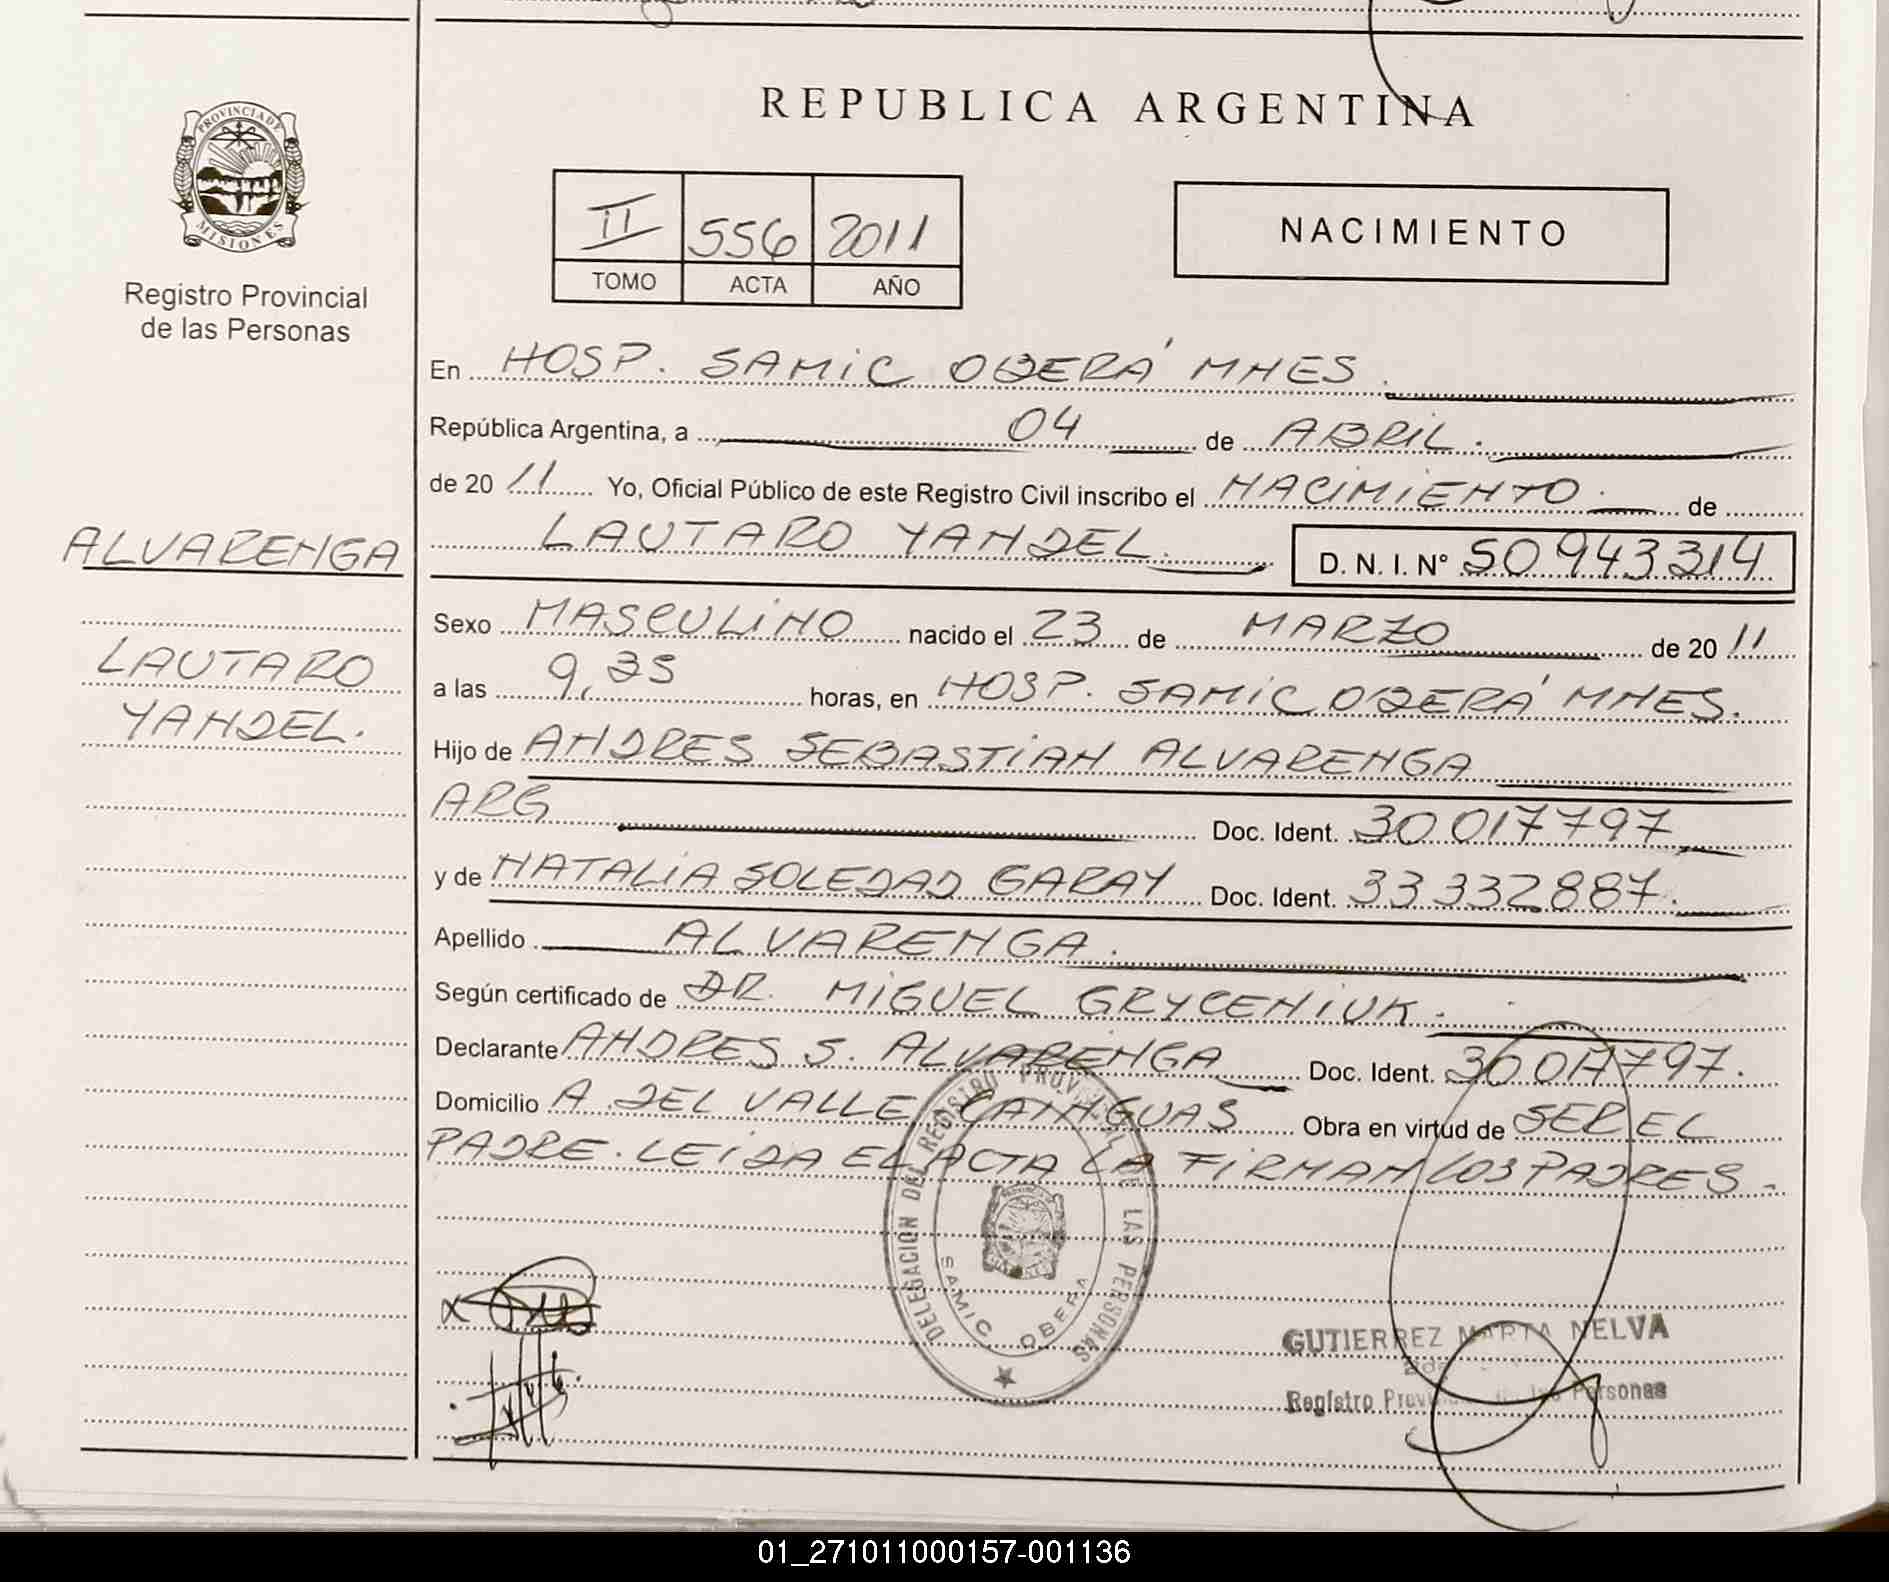 REPUBLICA ARGENTINA
PROVINCIA DE MISIONES
Registro Provincial
de las Personas
II 556 2011
TOMO ACTA AÑO
NACIMIENTO
En HOSP. SAMIC OBERÁ MNES.
República Argentina, a 04 de ABRIL.
de 20 11 Yo, Oficial Público de este Registro Civil inscribo el NACIMIENTO. de
LAUTARO YANDEL. D. N. I. N° 50943314
ALVARENGA
LAUTARO
YANDEL.
Sexo MASCULINO nacido el 23 de MARZO de 20 11
a las 9,35 horas, en HOSP. SAMIC OBERÁ MNES.
Hijo de ANDRES SEBASTIAN ALVARENGA
ARG Doc. Ident. 30017797
y de NATALIA SOLEDAD GARAY Doc. Ident. 33332887.
Apellido ALVARENGA.
Según certificado de DR. MIGUEL GRYCENIUK.
Declarante ANDRES S. ALVARENGA Doc. Ident. 30017797.
Domicilio A. DEL VALLE, CAINGUAS Obra en virtud de SER EL
PADRE. LEIDA EL ACTA LA FIRMAN LOS PADRES.
DELEGACION DEL REGISTRO PROVINCIAL DE LAS PERSONAS
SAMIC OBERA
GUTIERREZ MARTA NELVA
Registro Provincial de las Personas
01_271011000157-001136